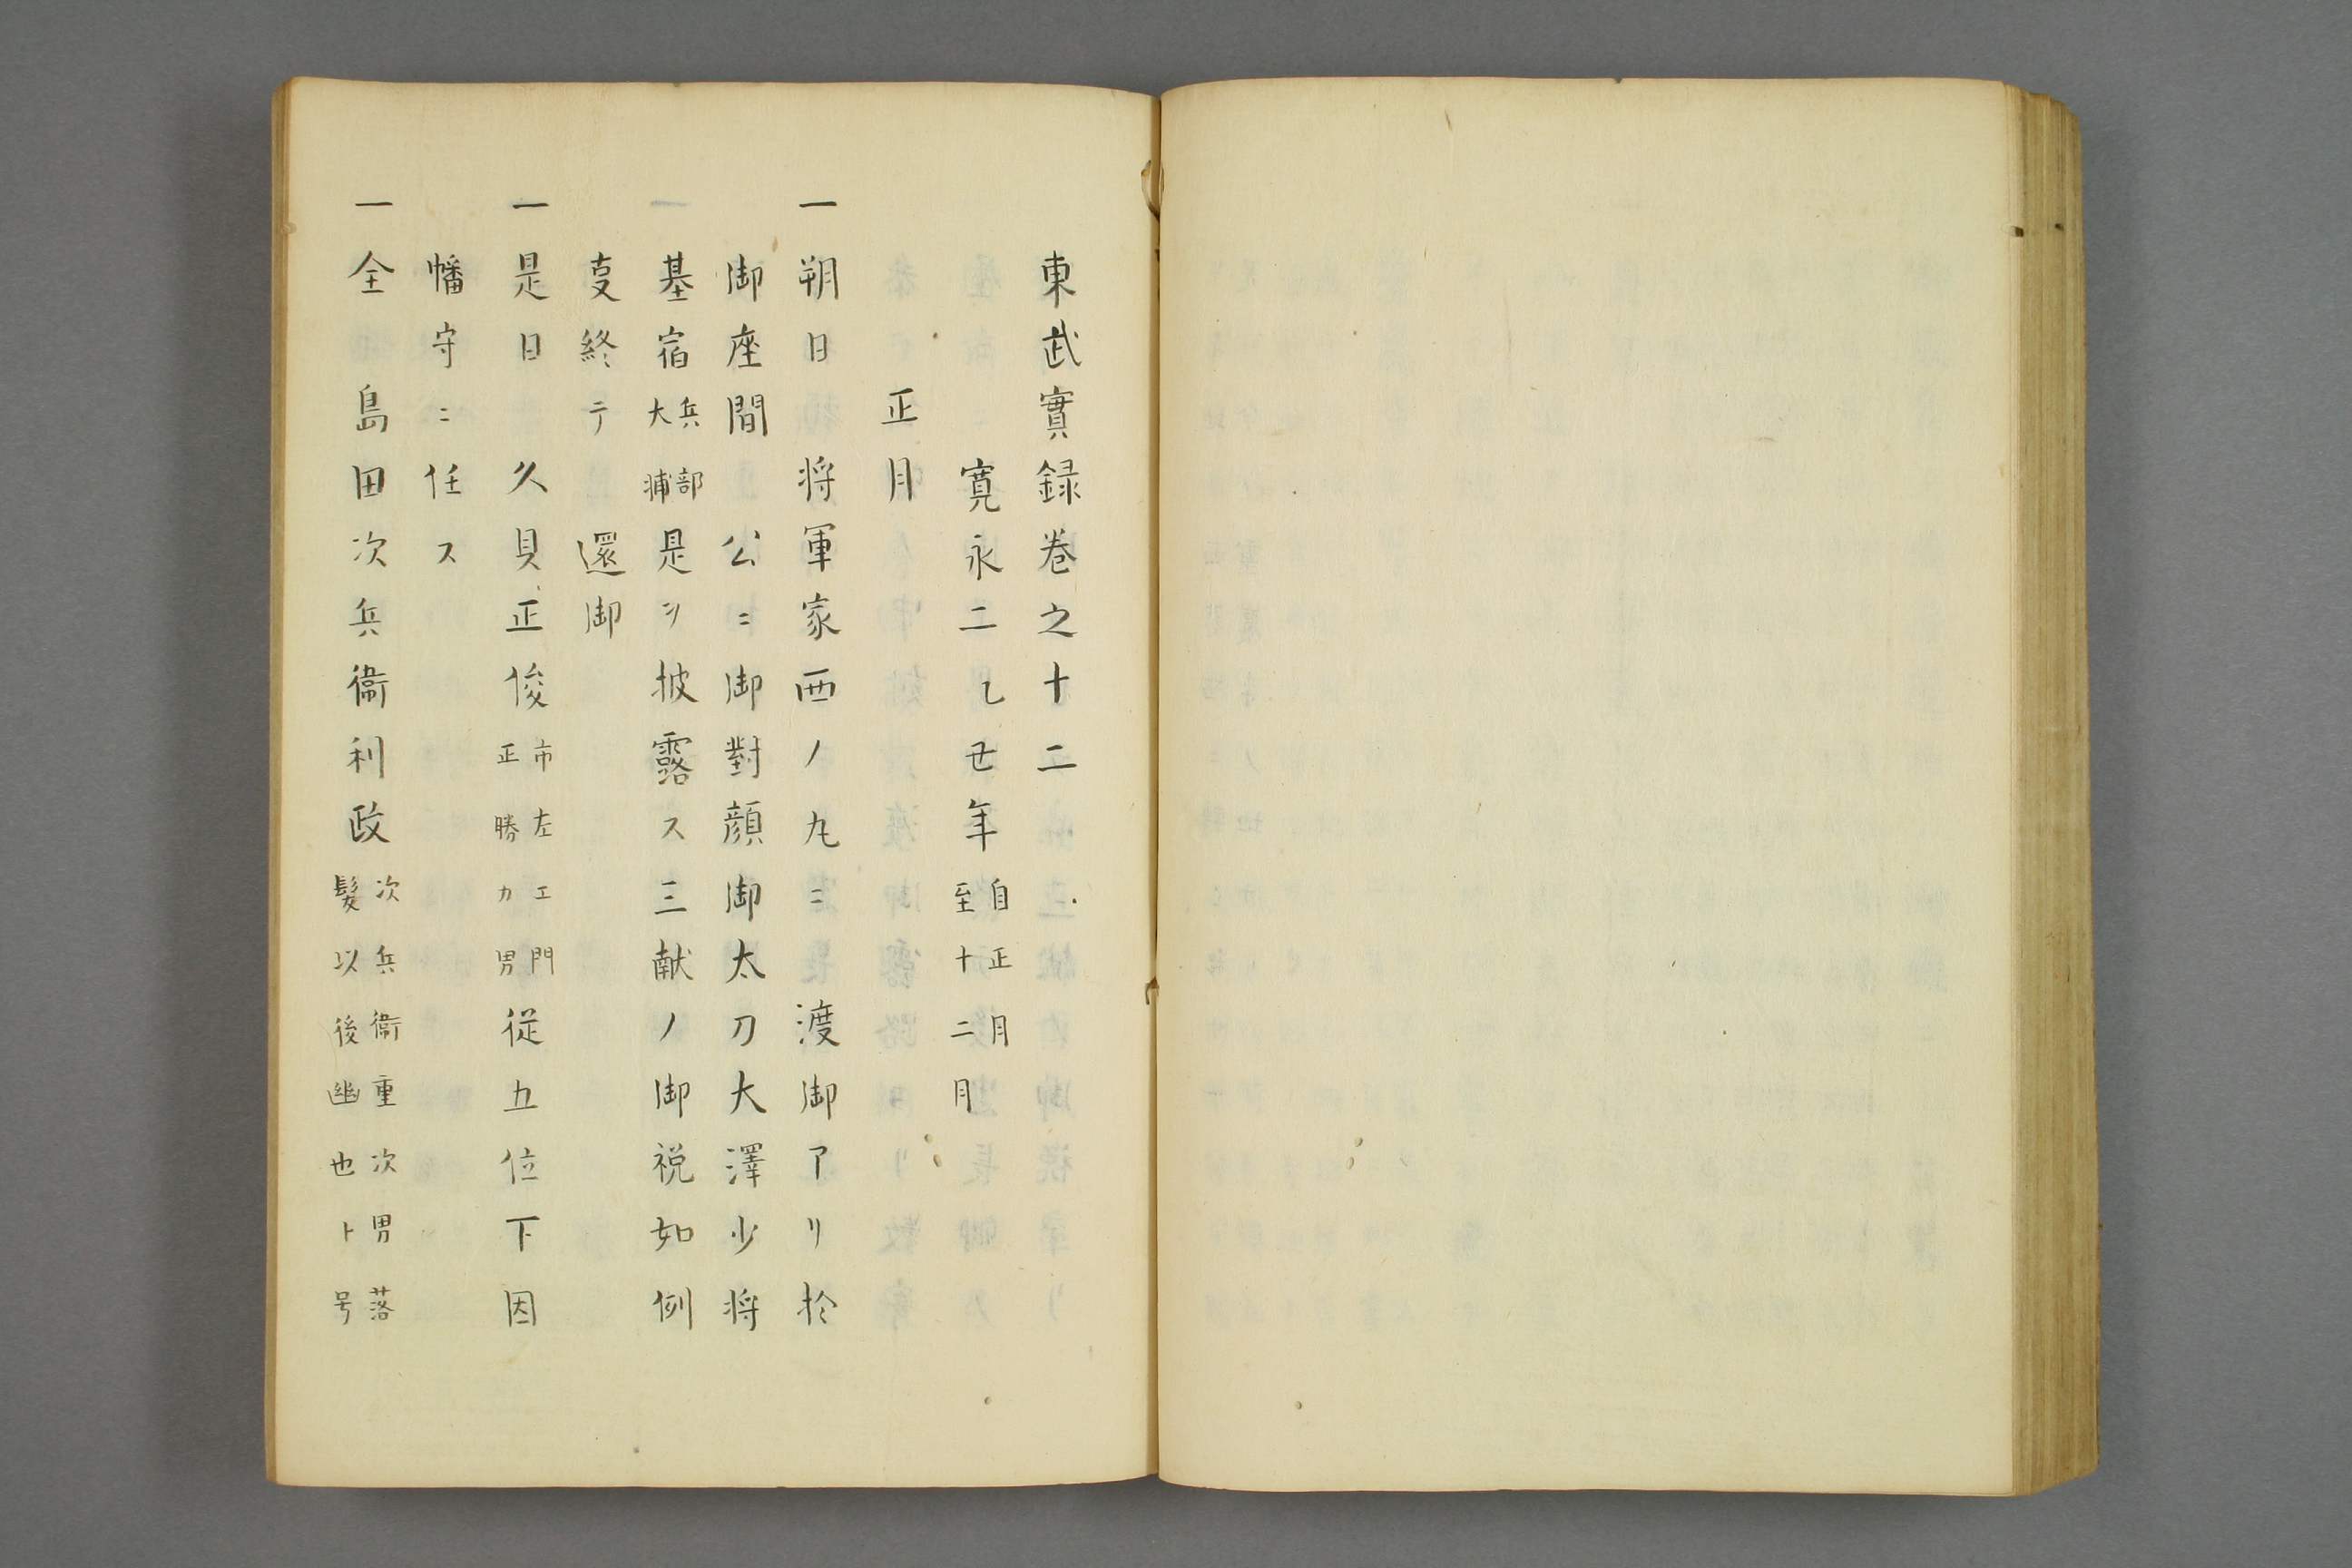 東武實録巻之十二
寛永二乙丑年自正月至十二月
正月
一朔日将軍家西ノ丸ニ渡御アリ於
御座間公ニ御對顔御太刀大澤少将
基宿兵部大浦是ヲ披露ス三献ノ御祝如例
叓終テ還御
一是日久貝正俊市左エ門正勝カ男従五位下因
幡守ニ任ス
一仝島田次兵衞利政次兵衞重次男落髮以後幽也ト号